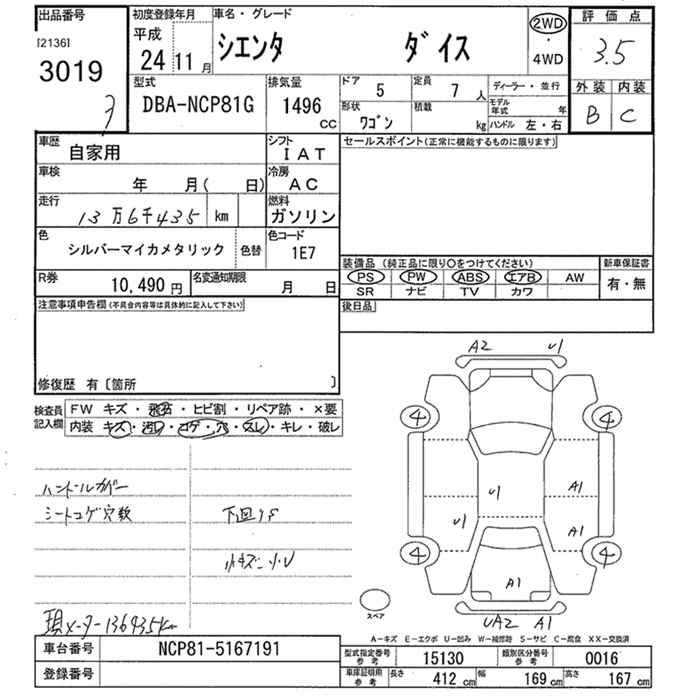 出品番号 初度登録年月 車名・グレード 評価点
[2136] 平成
3019 24 11月 シエンタ ダイス 2WD・4WD 3.5
型式 排気量 ドア 定員 ディーラー・並行 外装 内装
DBA-NCP81G 1496 CC 5 7人 モデル年式 年 B C
形状 ワゴン 積載 kg ハンドル 左・右
車歴 自家用 シフト IAT セールスポイント(正常に機能するものに限ります)
車検 年 月( 日) 冷房 AC
走行 13万6千435 km 燃料 ガソリン
色 シルバーマイカメタリック 色替 色コード 1E7
装備品(純正品に限り〇をつけてください) 新車保証書
PS PW ABS エアB AW 有・無
SR ナビ TV カワ
R券 10,490円 名変通知期限 月 日
後日品
注意事項申告欄(不具合内容等は具体的に記入して下さい)
修復歴 有〔箇所 〕
検査員記入欄 FW キズ・飛石・ヒビ割・リペア跡・×要
内装 キズ・汚レ・コゲ・穴・スレ・キレ・破レ
A2 U1
4 4
U1 A1
U1 A1
4 4
A1
UA2 A1
ハンドルカバー
シートコゲ穴数
下回りS
小キズ・小U
現メーター136435km
スペア
A-キズ E-エクボ U-凹み W-補修跡 S-サビ C-腐食 XX-交換済
車台番号 NCP81-5167191
登録番号
型式指定番号参考 15130 類別区分番号参考 0016
車庫証明用参考 長さ 412 cm 幅 169 cm 高さ 167 cm